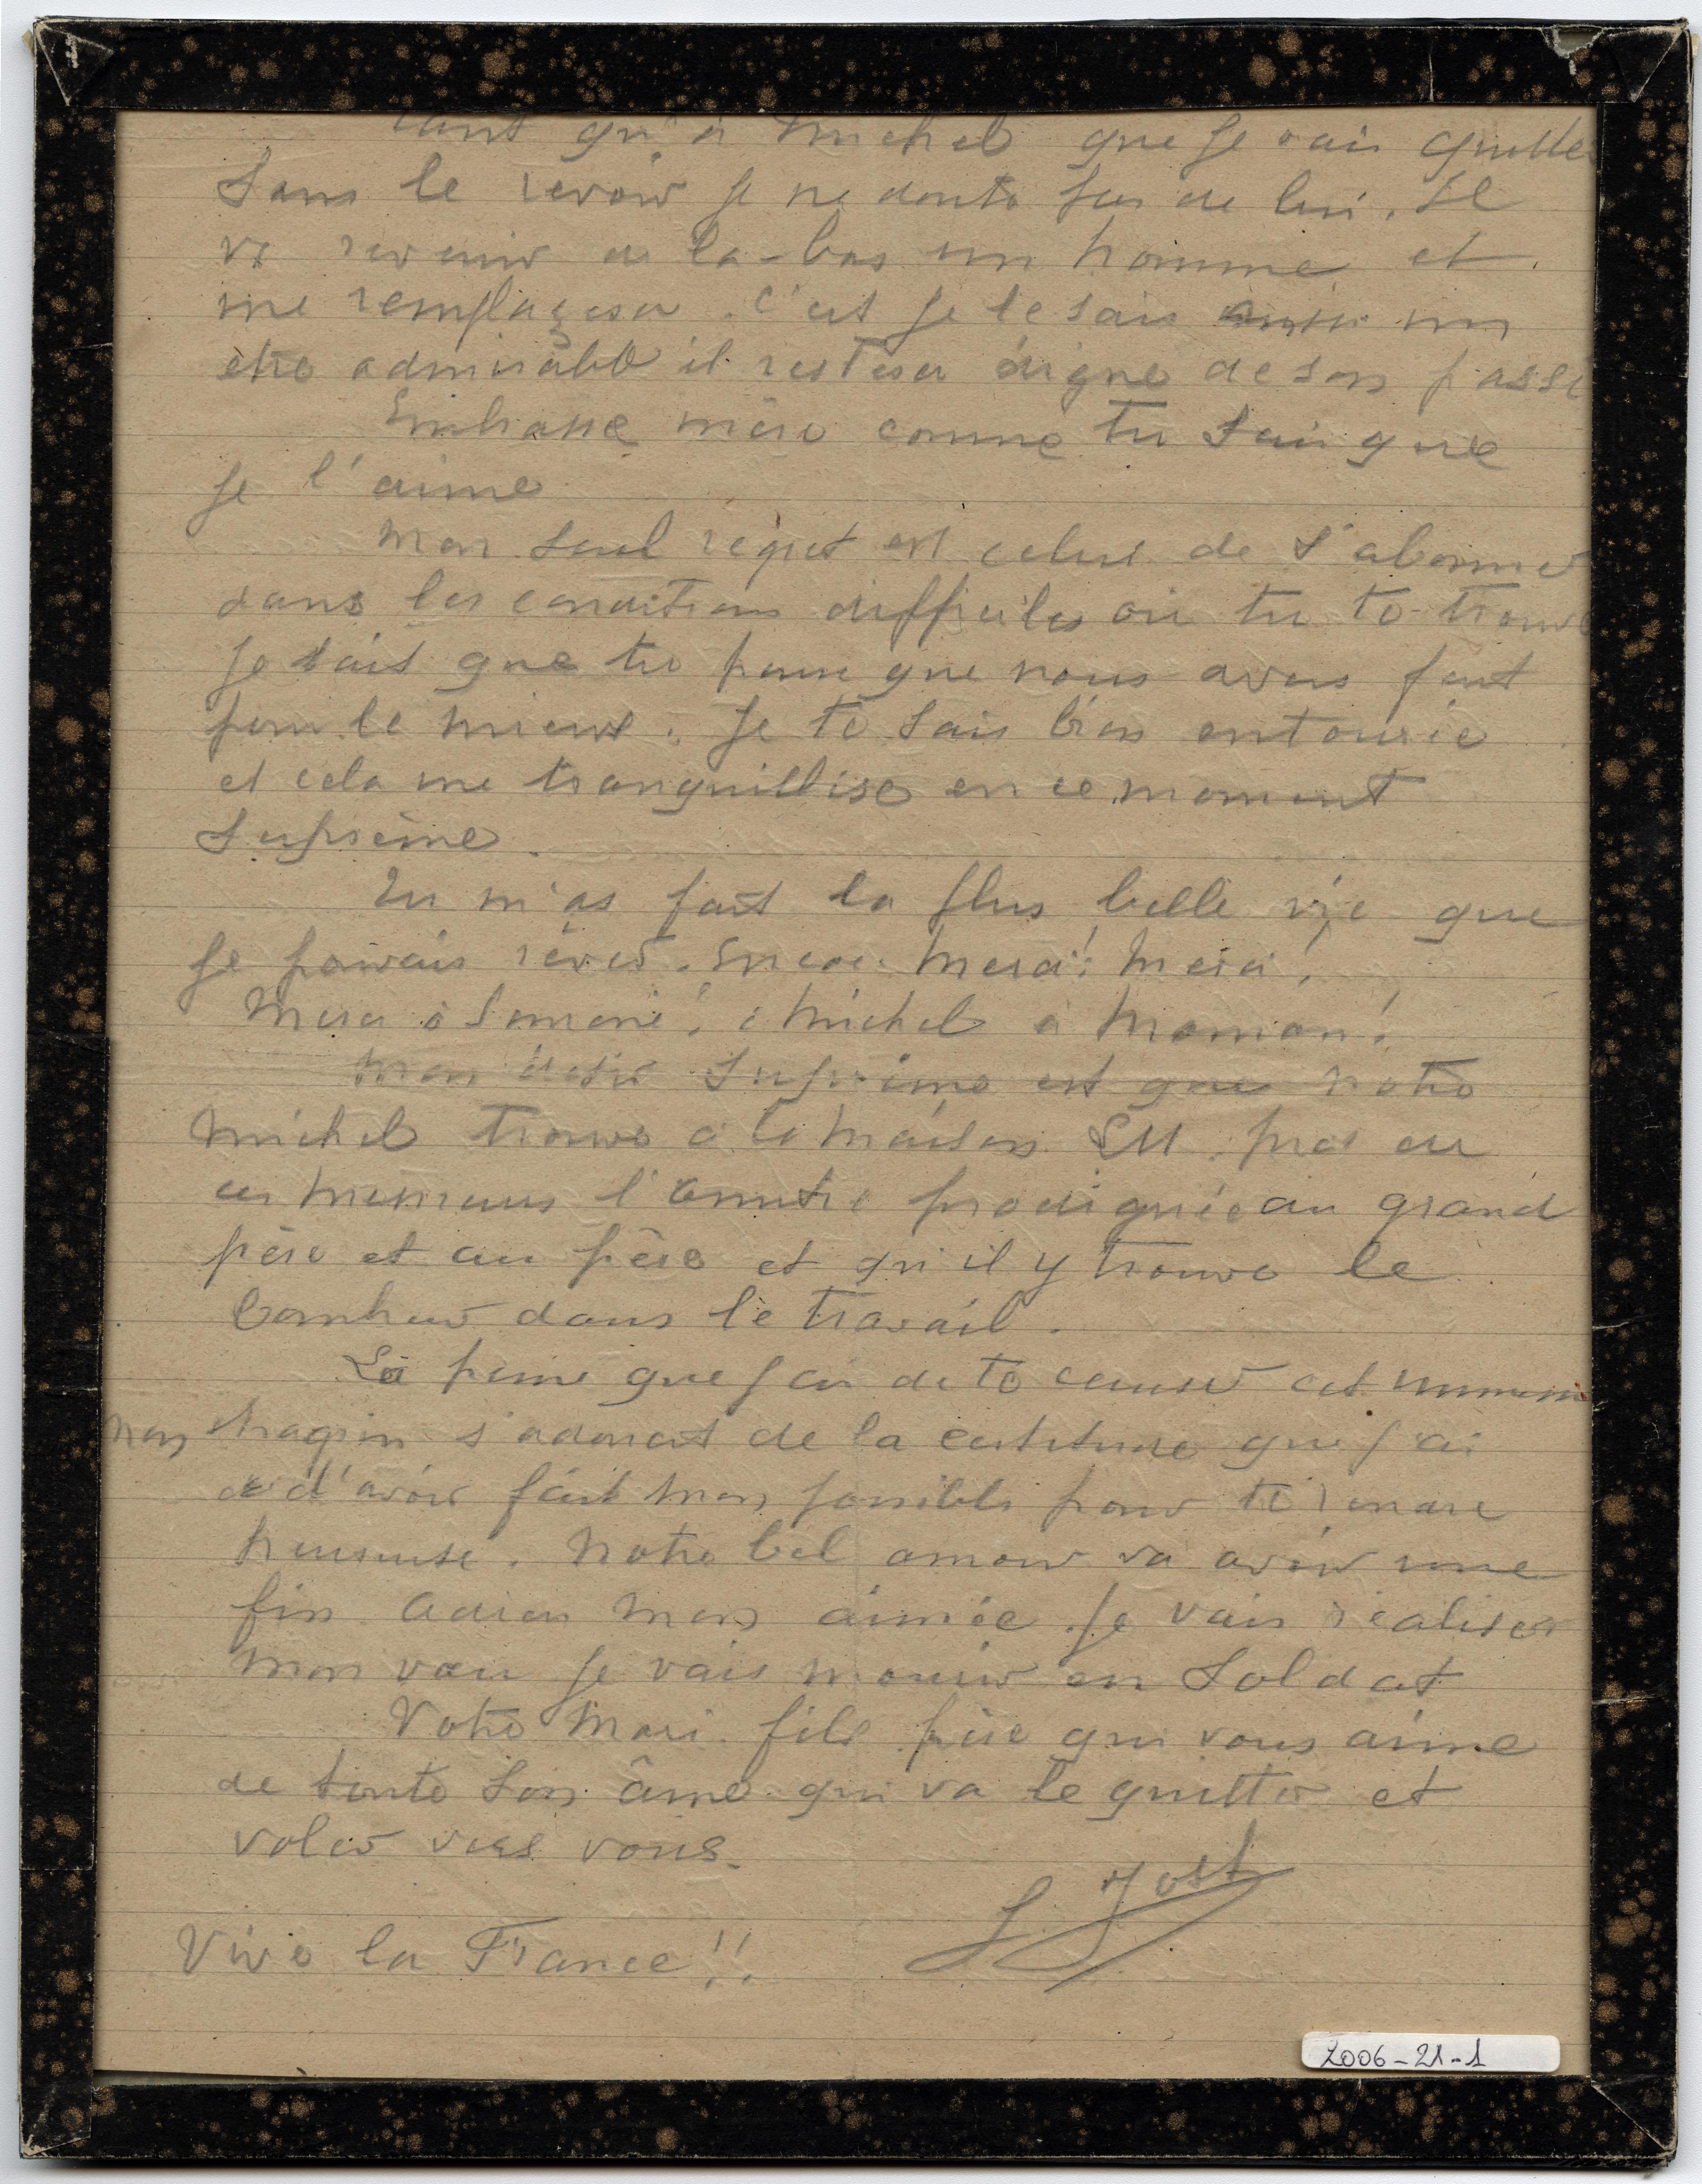 tant qu'à Michel que je vais quitter
sans le revoir je ne doute pas de lui. Il
va revenir de là-bas un homme et
me remplaçera. C'est je le sais aussi un
être admirable il restera digne de son passé
Embrasse mère comme tu sais que
je l'aime
Mon seul regret est celui de
dans les conditions difficiles où tu te trouve
je sais que tu pense que nous avons fait
pour le mieux. Je te sais bien entourée
et cela me tranquillise en ce moment
suprême.
Tu m'as fait la plus belle vie que
je pouvais rêver. Encore Merci! Merci!
Merci à Simone! à Michel à Maman!
Mon désir suprême est que notre
Michel trouve à la Maison près de
ces Messieurs l'amitié prodiguée au grand
père et au père et qu'il y trouve le
bonheur dans le travail.
La peine que j'ai de te causer cet immense
chagrin s'adoucit de la certitude que j'ai
d'avoir fait mon possible pour te rendre
heureuse. Notre bel amour va avoir une
fin. Adieu mon aimée. Je vais réaliser
mon vœu je vais mourir en soldat
Votre Mari fils père qui vous aime
de toute son âme qui va le quitter et
voler vers vous.
Jost
Vive la France!!
2006-21-1